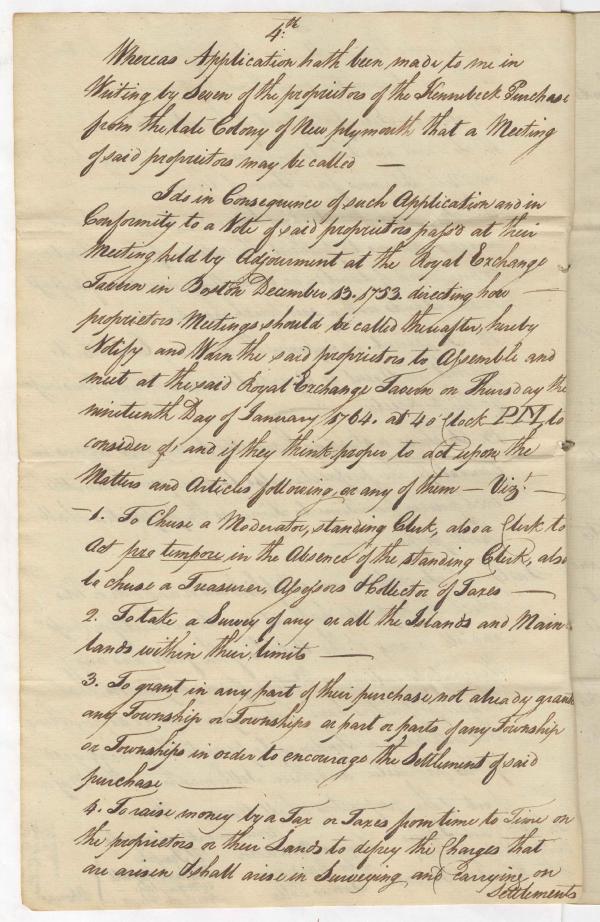 4.th
Whereas Application hath been made to me in
Writing by Seven of the proprietors of the Kennebeck Purchase
from the late Colony of New plymouth that a Meeting
of said proprietors may be called —
I do in Consequence of such Application and in
Conformity to a Vote of said proprietors pass'd at their
Meeting held by Adjournment at the Royal Exchange
Tavern in Boston December 13. 1753. directing how —
proprietors Meetings should be called thereafter, hereby
Notify and Warn the said proprietors to Assemble and
meet at the said Royal Exchange Tavern on Thursday the
nineteenth Day of January 1764. at 4 o'Clock PM, to
consider of, and if they think proper to act upon the
Matters and Articles following, or any of them — Viz.t —
1. To Chuse a Moderator, standing Clerk, also a Clerk to
Act pro tempore in the Absence of the standing Clerk, also
to chuse a Treasurer, Assessors & Collector of Taxes —
2. To take a Survey of any or all the Islands and Main
lands within their limits —
3. To grant in any part of their purchase, not already grante
any Township or Townships or part or parts of any Township
or Townships in order to encourage the Settlement of said
purchase —
4. To raise money by a Tax or Taxes from time to Time on
the proprietors or their Lands to defrey the Charges that
are arisen & shall arise in Surveying and carrying on
Settlements